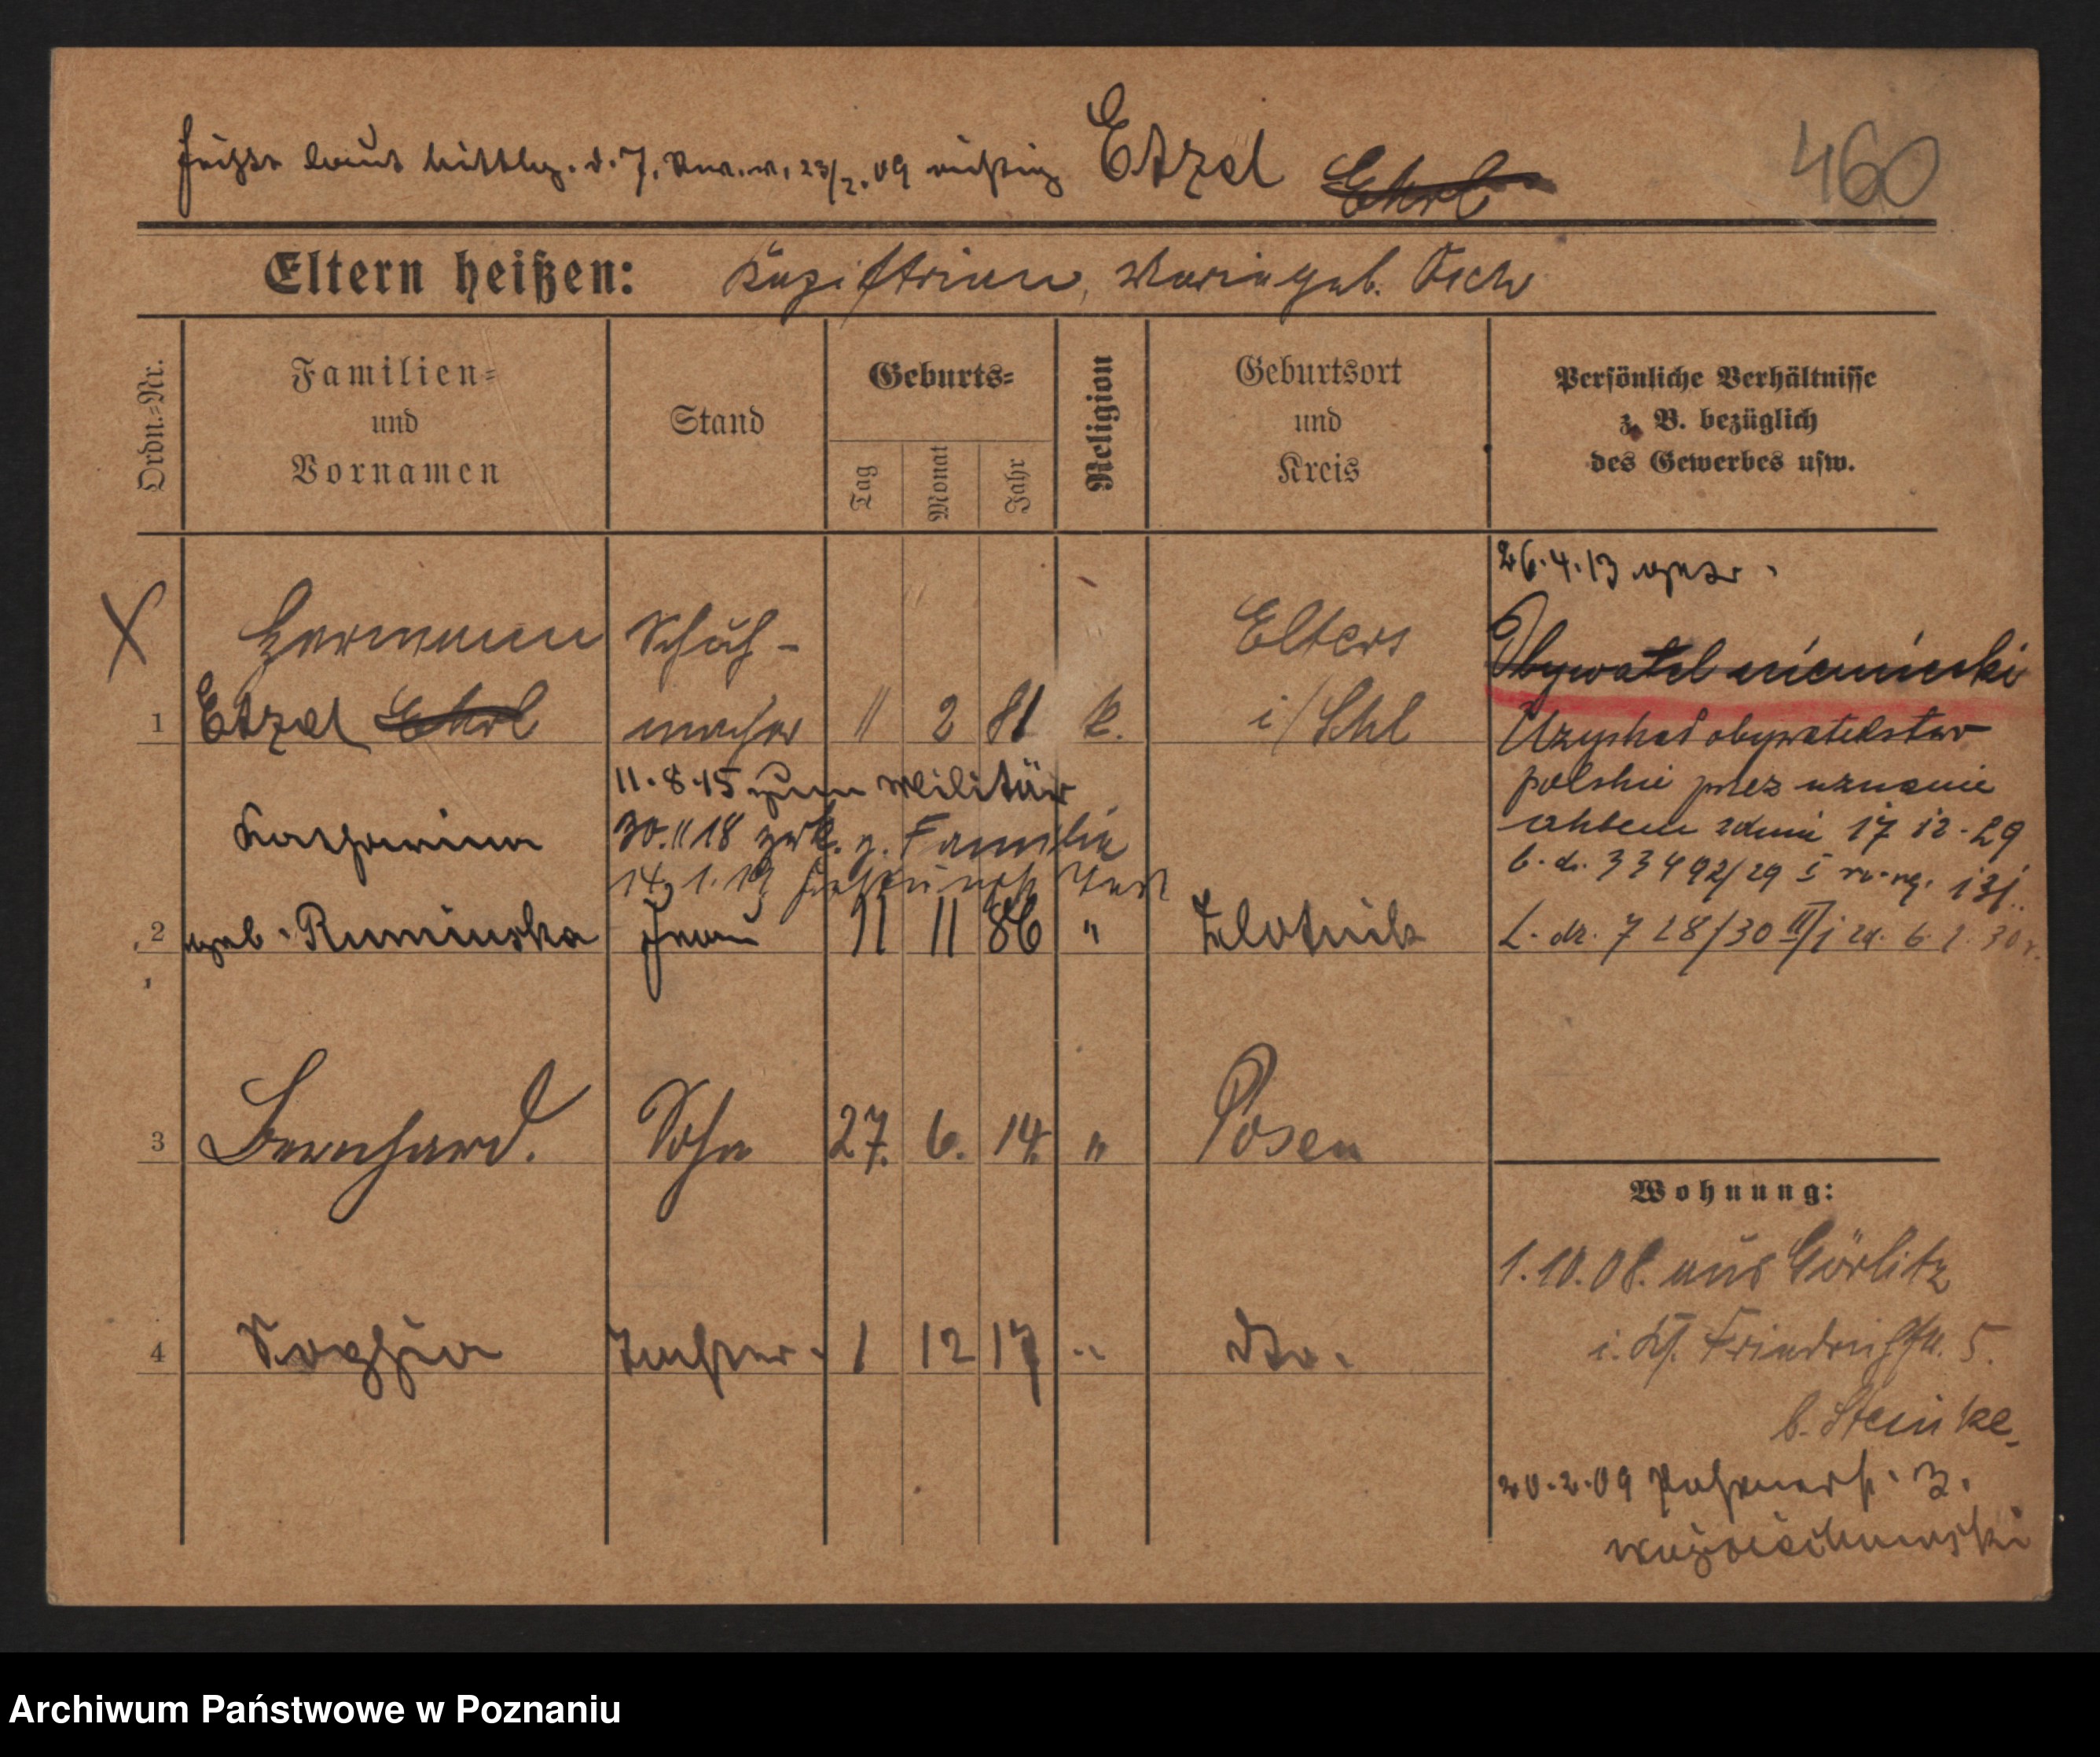 heißt laut Mittlg. d. 7. Rev. v. 23/2.09 richtig Etzel Ehrl
460
Eltern heißen: Maria geb.
Ordn.=Nr.
Familien=
und
Vornamen
Stand
Geburts=
Tag
Monat
Jahr
Religion
Geburtsort
und
Kreis
Persönliche Verhältnisse
z. B. bezüglich
des Gewerbes usw.
X
Hermann Schuh-
1 Etzel Ehrl macher 11 2 81 k.
Elters
i/Schl
26.4.13
Obywatel niemiecki
Uzyskał obywatelstwo
polskie przez uznanie
aktem z dnia 17 12-29
L. dz. 33492/29
L. dz. 728/30 II/j zd. 6. 2. 30 r.
11.8.15 zum Militär
30.11 18 zrk. z. Familie
14.1.19
Katharina
2 geb. Ruminska Frau 11 11 86 " Zlotnik
3 Bernhard. Sohn 27. 6. 14. " Posen
4 Sophia Tochter. 1 12 17 " dto.
Wohnung:
1.10.08. aus Görlitz
i. Schl. Friedrichstr. 5.
b. Steinke.
20.2.09 3.
Wojciechowski
Archiwum Państwowe w Poznaniu